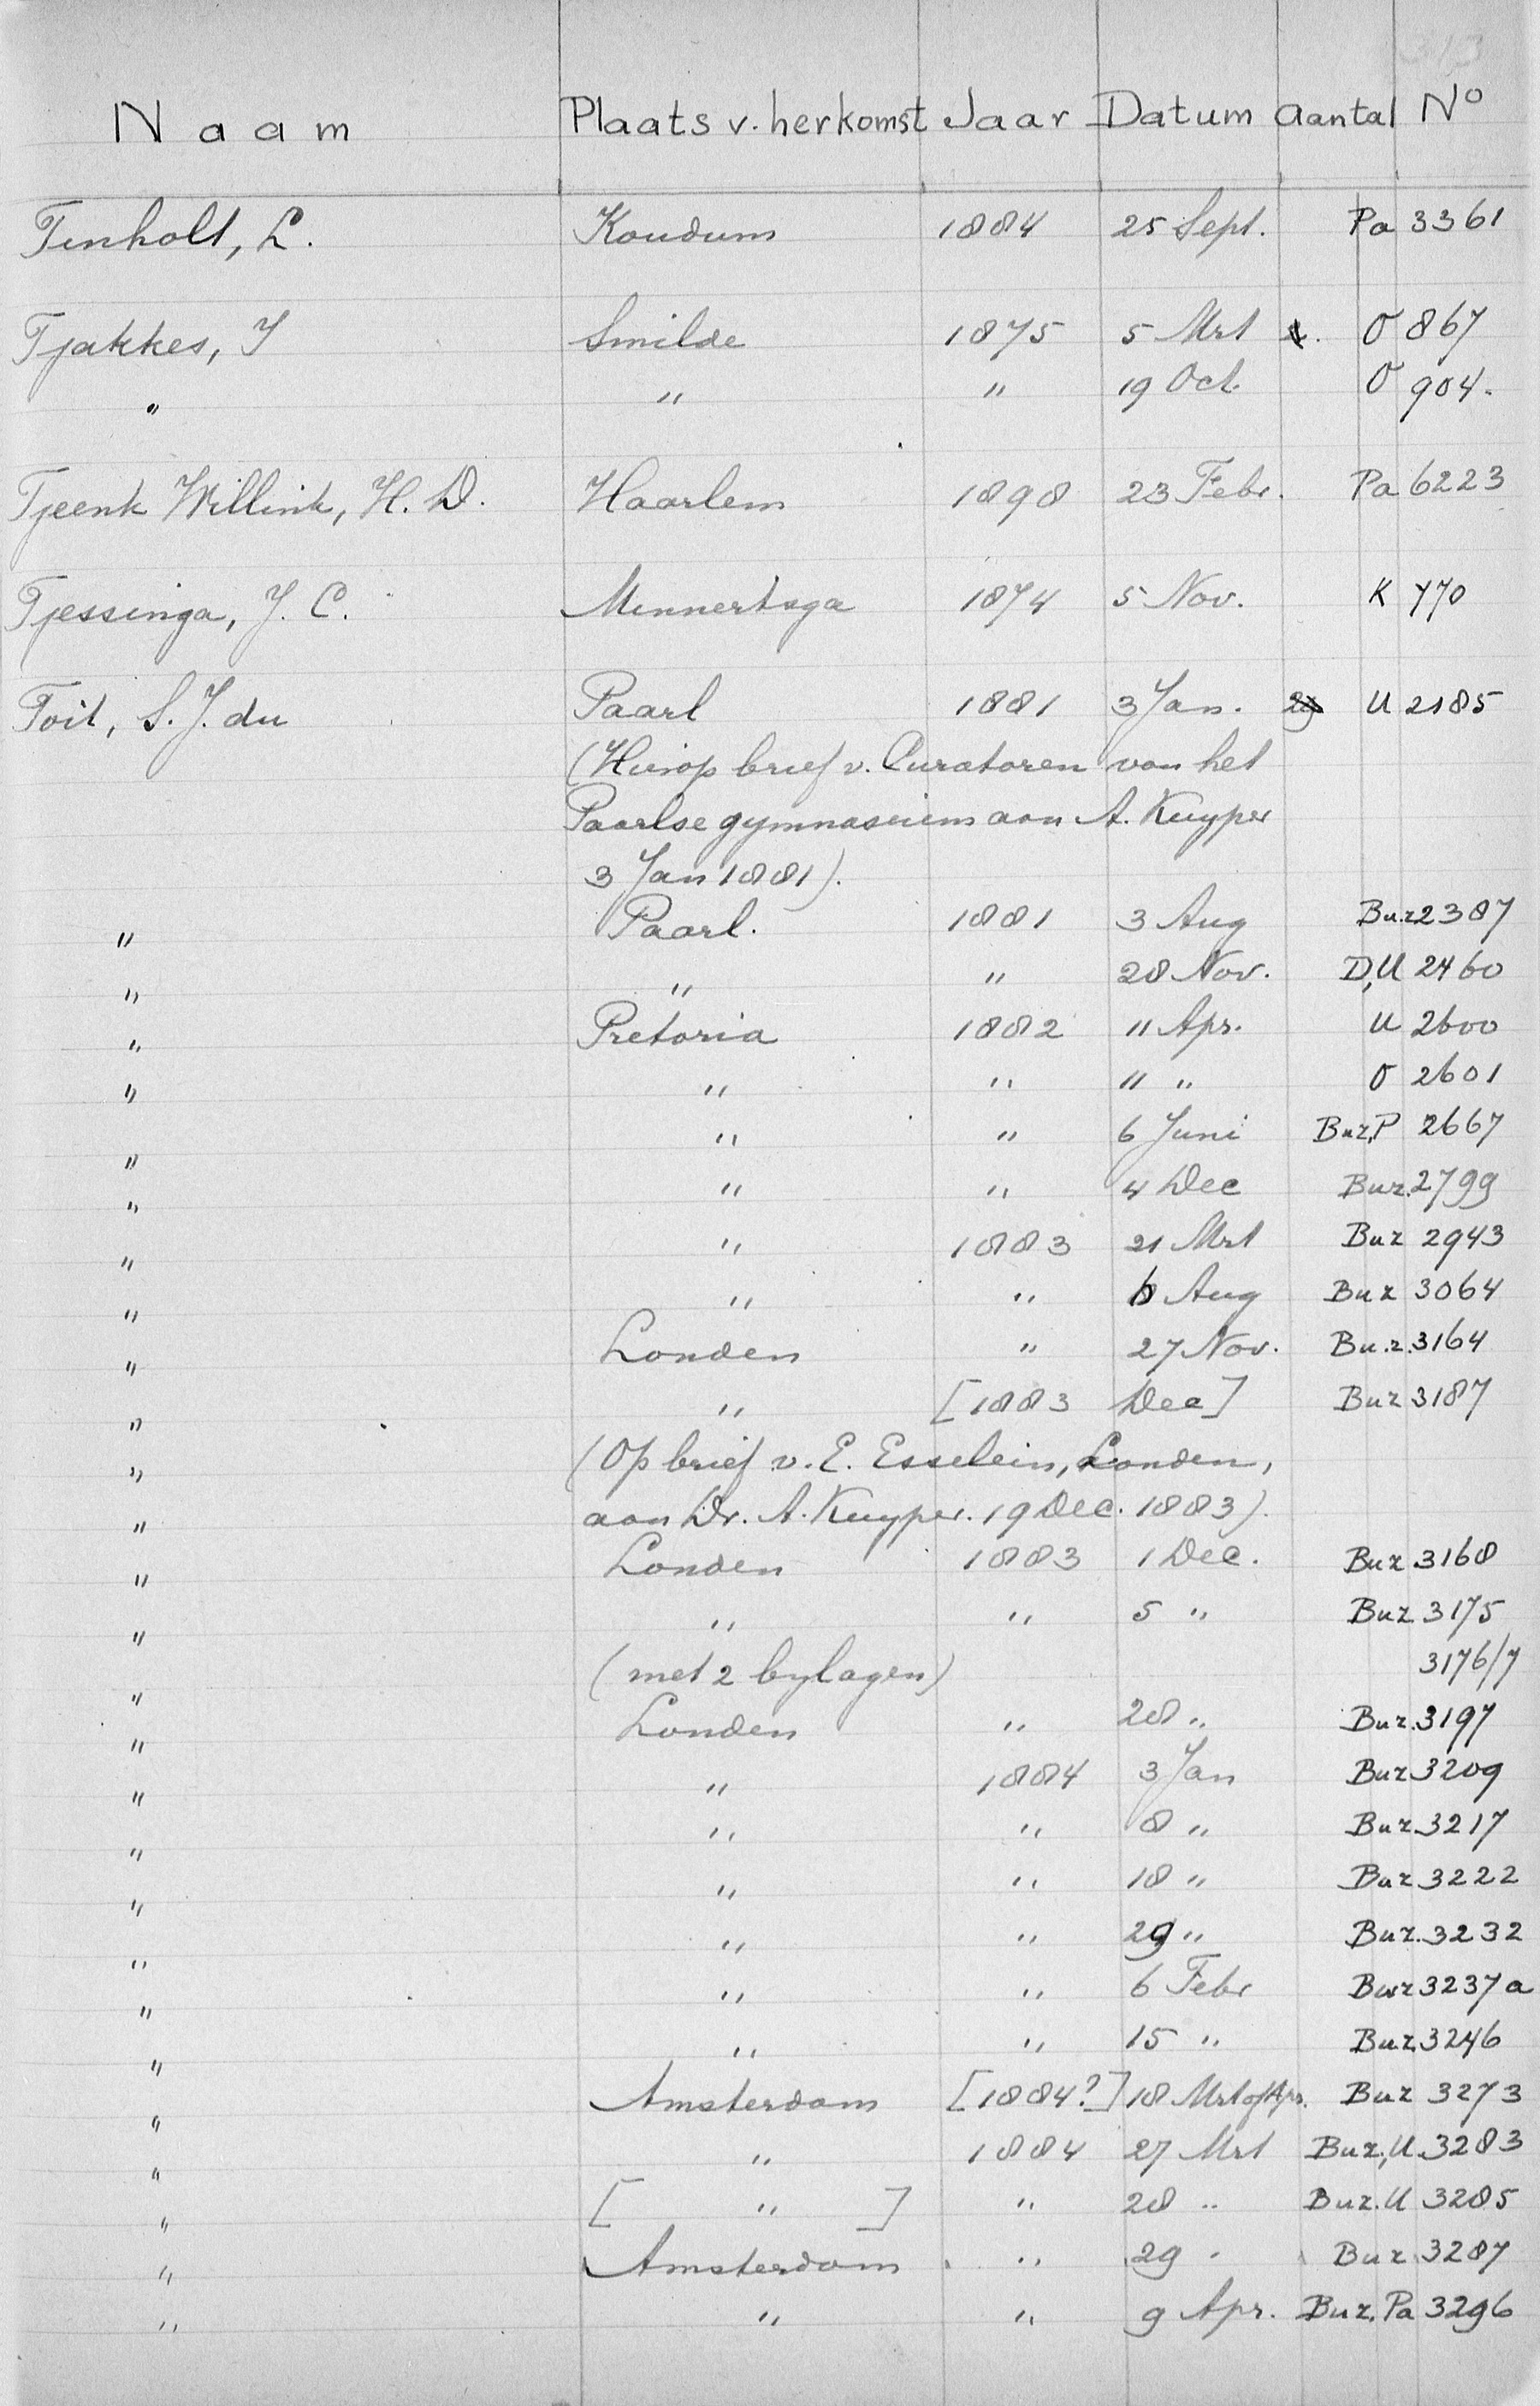 313
Naam Plaats v. herkomst Jaar Datum Aantal No
Tinholt, L. Koudum 1884 25 Sept. Pa 3361
Tjakkes, J Smilde 1875 5 Mrt O 867
" " " 19 Oct. O 904.
Tjeenk Willink, H. D. Haarlem 1898 23 Febr. Pa 6223
Tjessinga, J. C. Minnertsga 1874 5 Nov. K 770
Toit, S. J. du Paarl 1881 3 Jan. U 2185
(Hierop brief v. Curatoren van het
Paarlse gymnasium aan A. Kuyper
3 Jan 1881).
" Paarl. 1881 3 Aug Buz 2387
" " " 28 Nov. D, U 2460
" Pretoria 1882 11 Apr. U 2600
" " " 11 " O 2601
" " " 6 Juni Buz, P 2667
" " " 4 Dec Buz. 2799
" " 1883 21 Mrt Buz 2943
" " " Aug Buz 3064
" Londen " 27 Nov. Buz. 3164
" " [1883 Dec] Buz 3187
" (Op brief v. E. Esselein, Londen,
" aan Dr. A. Kuyper. 19 Dec. 1883).
" Londen 1883 1 Dec. Buz 3168
" " " 5 " Buz 3175
" (met 2 bylagen) 3176/7
" Londen " 28 " Buz. 3197
" " 1884 3 Jan Buz 3209
" " " 8 " Buz 3217
" " " 18 " Buz 3222
" " " 29 " Buz. 3232
" " " 6 Febr Buz 3237a
" " " 15 " Buz 3246
" Amsterdam [1884?] 18 Mrt of Apr. Buz 3273
" " 1884 27 Mrt Buz, U. 3283
" [ " ] " 28 " Buz. U 3285
" Amsterdam " 29 " Buz 3287
" " " 9 Apr. Buz, Pa 3296